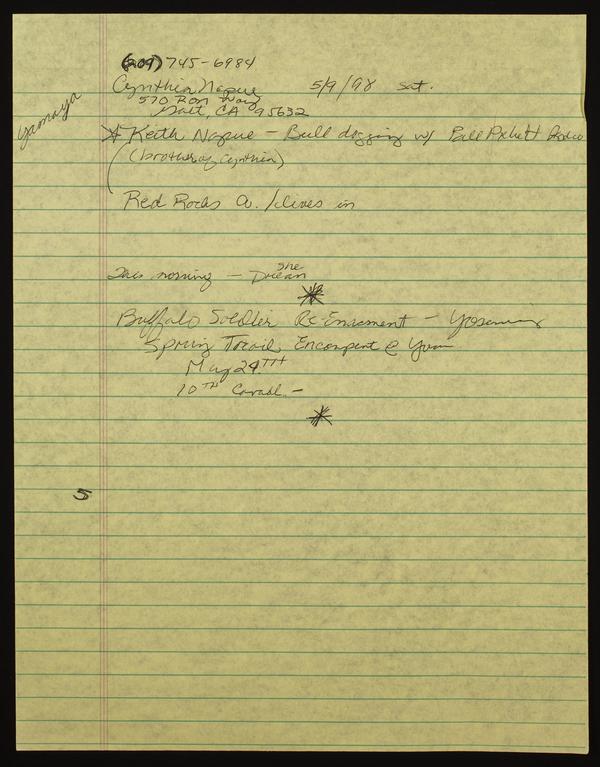 (209) 745-6984
Cynthia Napue 5/9/98 Sat.
570 Ron Way
Galt, CA 95632
Yamaya
* Keith Napue - Bull dogging w/ Bill Pickett Rodeo
(brother of Cynthia)
Red Rocks Co. / lives in
This morning - Dream
she
*
Buffalo Soldier Re-Enacment -
Spring Encampent @
May 29TH
10TH
*
5